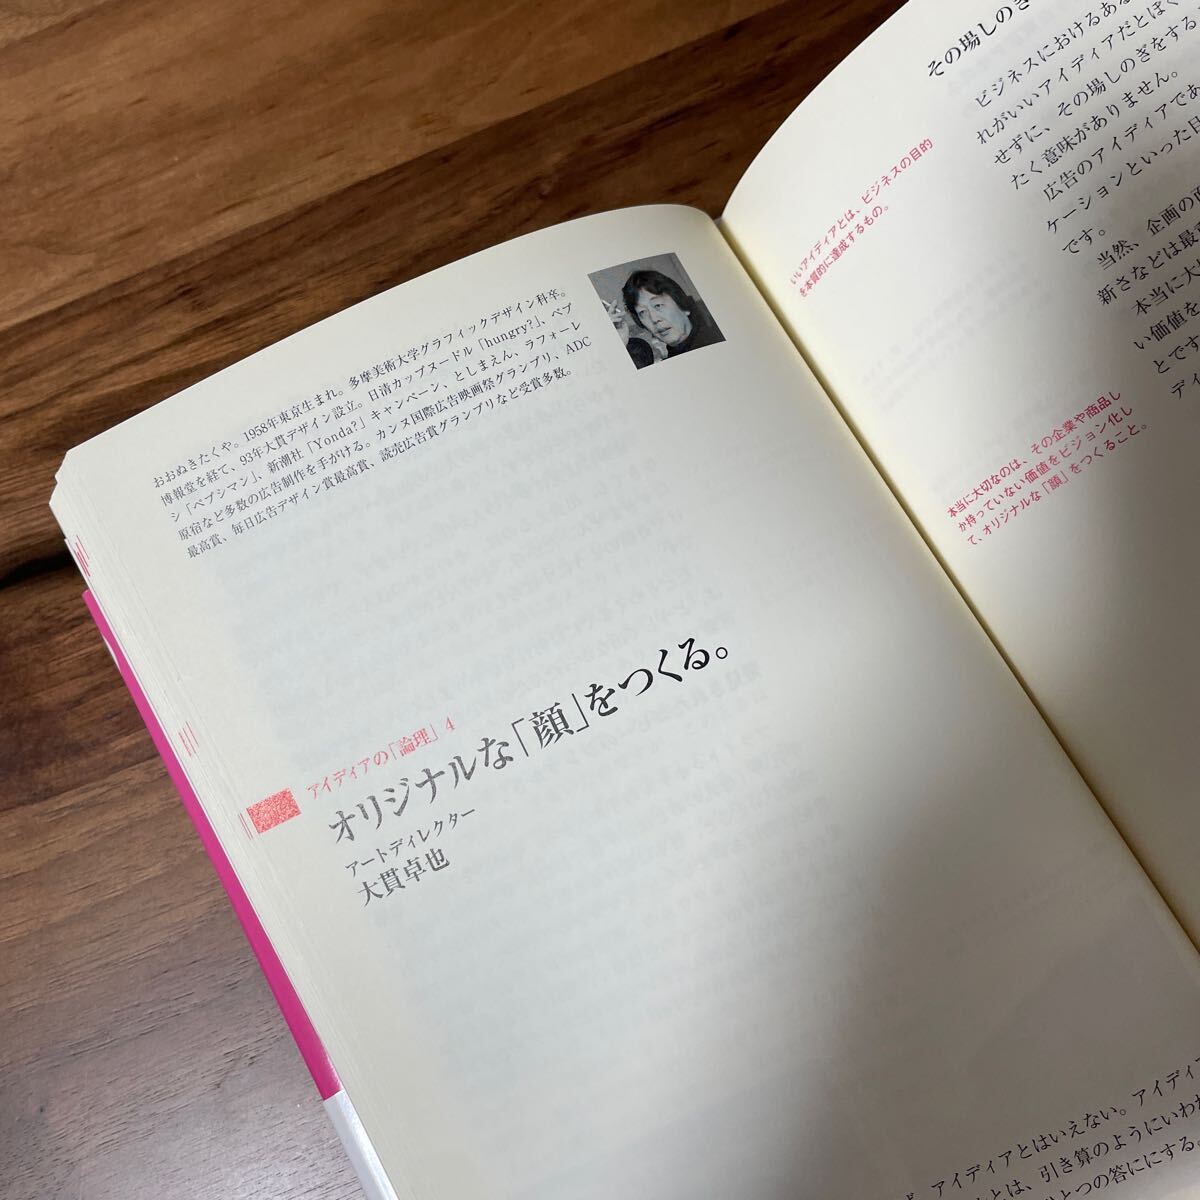 おおぬきたくや。1958年東京生まれ。多摩美術大学グラフィックデザイン科卒。
博報堂を経て、93年大貫デザイン設立。日清カップヌードル「hungry?」、ペプ
シ「ペプシマン」、新潮社「Yonda?」キャンペーン、としまえん、ラフォーレ
原宿など多数の広告制作を手がける。カンヌ国際広告映画祭グランプリ、ADC
最高賞、毎日広告デザイン賞最高賞、読売広告賞グランプリなど受賞多数。
アイディアの「論理」4
オリジナルな「顔」をつくる。
アートディレクター
大貫卓也
その場しのぎ
ビジネスにおけるある
れがいいアイディアだとぼく
せずに、その場しのぎをする
たく意味がありません。
広告のアイディアであ
ケーションといった目
です。
当然、企画の商
新さなどは最
本当に大切
い価値を
とです
ディ
いいアイディアとは、ビジネスの目的
を本質的に達成するもの。
本当に大切なのは、その企業や商品し
か持っていない価値をビジョン化し
て、オリジナルな「顔」をつくること。
アイディアとはいえない。アイディ
とは、引き算のようにいわ
とつの答にする。